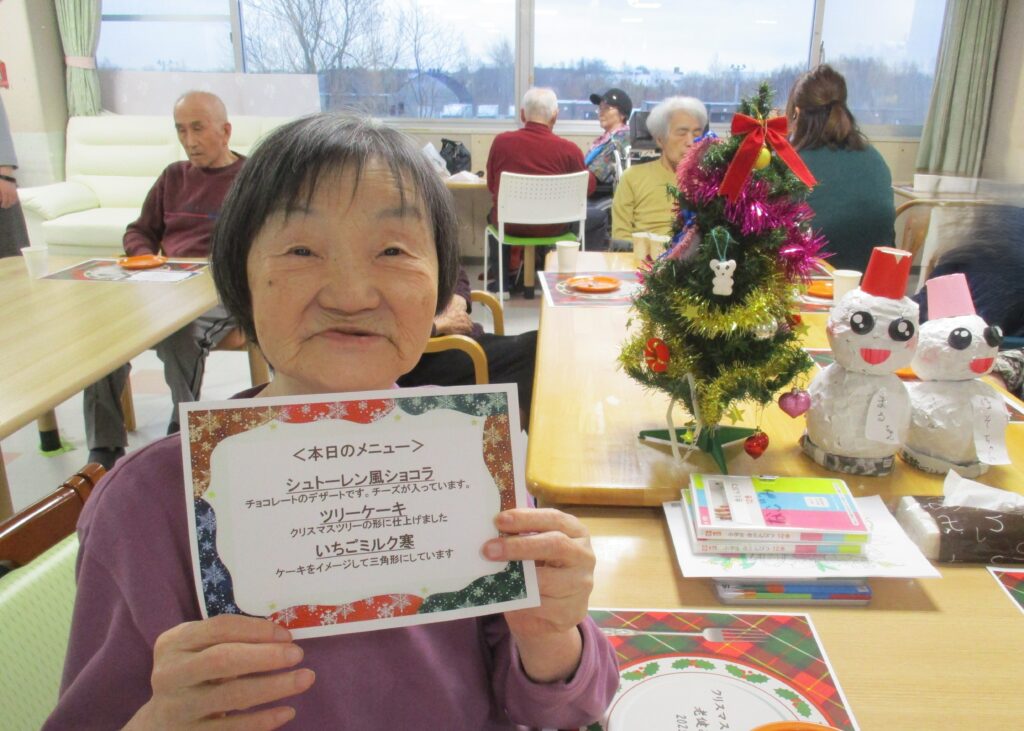 <本日のメニュー>
シュトーレン風ショコラ
チョコレートのデザートです。チーズが入っています。
ツリーケーキ
クリスマスツリーの形に仕上げました
いちごミルク寒
ケーキをイメージして三角形にしています
クリスマス